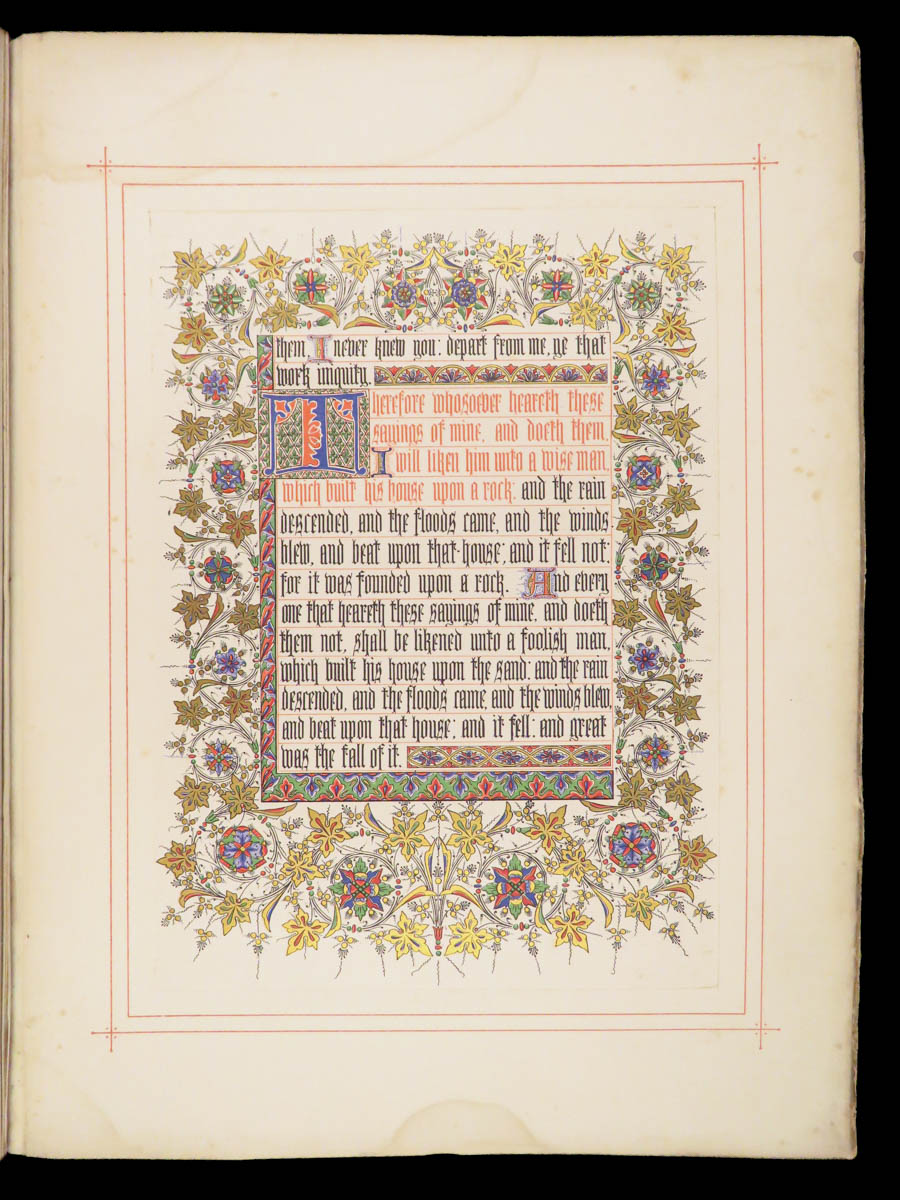 them, I never knew you: depart from me, ye that
work iniquity.
Therefore whosoever heareth these
sayings of mine, and doeth them,
I will liken him unto a wise man,
which built his house upon a rock: and the rain
descended, and the floods came, and the winds
blew, and beat upon that house; and it fell not:
for it was founded upon a rock. And every
one that heareth these sayings of mine, and doeth
them not, shall be likened unto a foolish man,
which built his house upon the sand: and the rain
descended, and the floods came, and the winds blew,
and beat upon that house; and it fell: and great
was the fall of it.